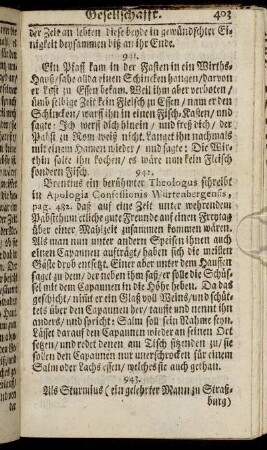 Gesellschafft. 403
der Zeit an lebten diese beyde in gewündschter Ei-
nigkeit beysammen biß an ihr Ende.
941.
Ein Pfaff kam in der Fasten in ein Wirths-
Hauß/ sahe allda einen Schincken hangen/ darvon
er Lust zu Essen bekam. Weil ihm aber verbotten/
umb selbige Zeit kein Fleisch zu Essen/ nam er den
Schincken/ warff ihn in einen Fisch-Kasten/ und
sagte: Ich werff dich hinein/ und freß dich/ der
Pabst zu Rom weiß nicht. Langet ihn nachmals
mit einem Hamen wieder/ und sagte: Die Wir-
thin solte ihn kochen/ es wäre nun kein Fleisch
sondern Fisch.
942.
Brentius ein berühmter Theologus schreibt
in Apologia Confessionis Würtenbergensis,
pag. 482. Das auf eine Zeit unter wehrendem
Pabstthum etliche gute Freunde auf einen Freytag
über einer Mahlzeit zusammen kommen wären.
Als man nun unter andern Speisen ihnen auch
einen Capaunen auffträgt/ haben sich die meisten
Gäste drob entsetzt. Einer aber unter dem Hauffen
saget zu dem/ der neben ihm saß/ er solle die Schüs-
sel mit dem Capaunen in die Höhe heben. Da das
geschicht/ nimt er ein Glaß voll Weins/ und schüt-
tets über den Capaunen her/ taufft und nennt ihn
anders/ und spricht: Salm soll sein Nahme seyn.
Lässet darauf den Capaunen wieder an seinen Ort
setzen/ und redet denen am Tisch sitzenden zu/ sie
sollen den Capaunen nur unerschrocken für einem
Salm oder Lachs essen/ welches sie auch gethan.
943.
Als Sturmius (ein gelehrter Mann zu Straß-
burg)